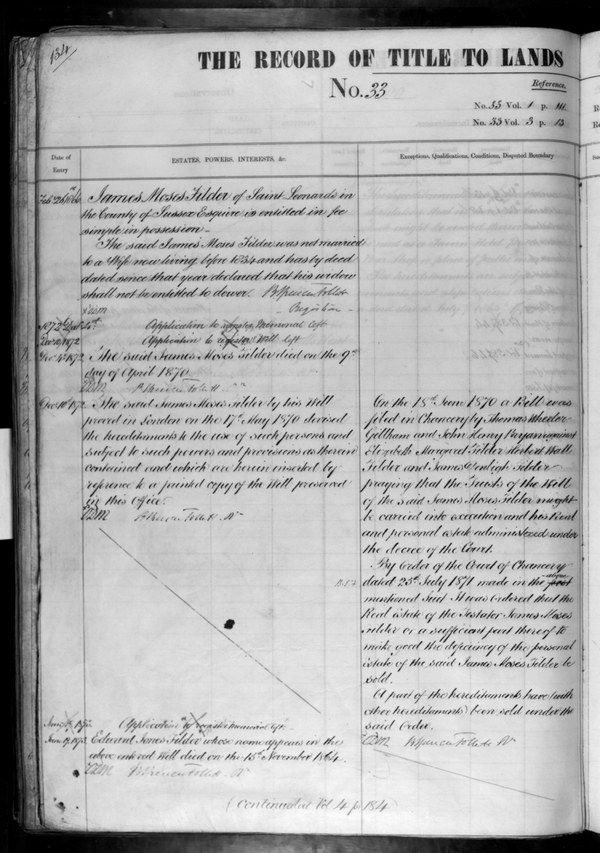 134
THE RECORD OF TITLE TO LANDS
No. 33
Reference.
No. 33 Vol. 1 p. 111
No. 33 Vol. 3 p. 13
Date of Entry
ESTATES, POWERS, INTERESTS, &c.
Exceptions, Qualifications, Conditions, Disputed Boundary
James Moses Tilder of Saint Leonards in
the County of Sussex Esquire is entitled in fee
simple in possession
The said James Moses Tilder was not married
to a Wife now living before 1834 and has by deed
dated since that year declared that his widow
shall not be entitled to dower. B Spencer Follett
Registrar
Application to register Memorial left
Application to register Will left
Decr 4th 1872 The said James Moses Tilder died on the 9th
day of April 1870.
Decr 10th 1872 The said James Moses Tilder by his Will
proved in London on the 17th May 1870 devised
the hereditaments to the use of such persons and
subject to such powers and provisions as therein
contained and which are herein inserted by
reference to a printed copy of the Will preserved
in this Office.
B Spencer Follett Rr
Application to register memorials left
Edward James Tilder whose name appears in the
above entered Will died on the 15th November 1864.
B Spencer Follett Rr
On the 18th June 1870 a Bill was
filed in Chancery by Thomas Wheeler
Gillham and John Henry Bryan against
Elizabeth Margaret Tilder Herbert Will
Tilder and James Tilder
praying that the Trusts of the Will
of the said James Moses Tilder might
be carried into execution and his Real
and personal estate administered under
the decree of the Court.
By Order of the Court of Chancery
dated 25th July 1871 made in the above
mentioned Suit It was Ordered that the
Real Estate of the Testator James Moses
Tilder or a sufficient part thereof to
make good the deficiency of the personal
Estate of the said James Moses Tilder be
sold.
A part of the hereditaments have (with
other hereditaments) been sold under the
said Order.
B Spencer Follett Rr
(Continued at Vol. 4 p 184